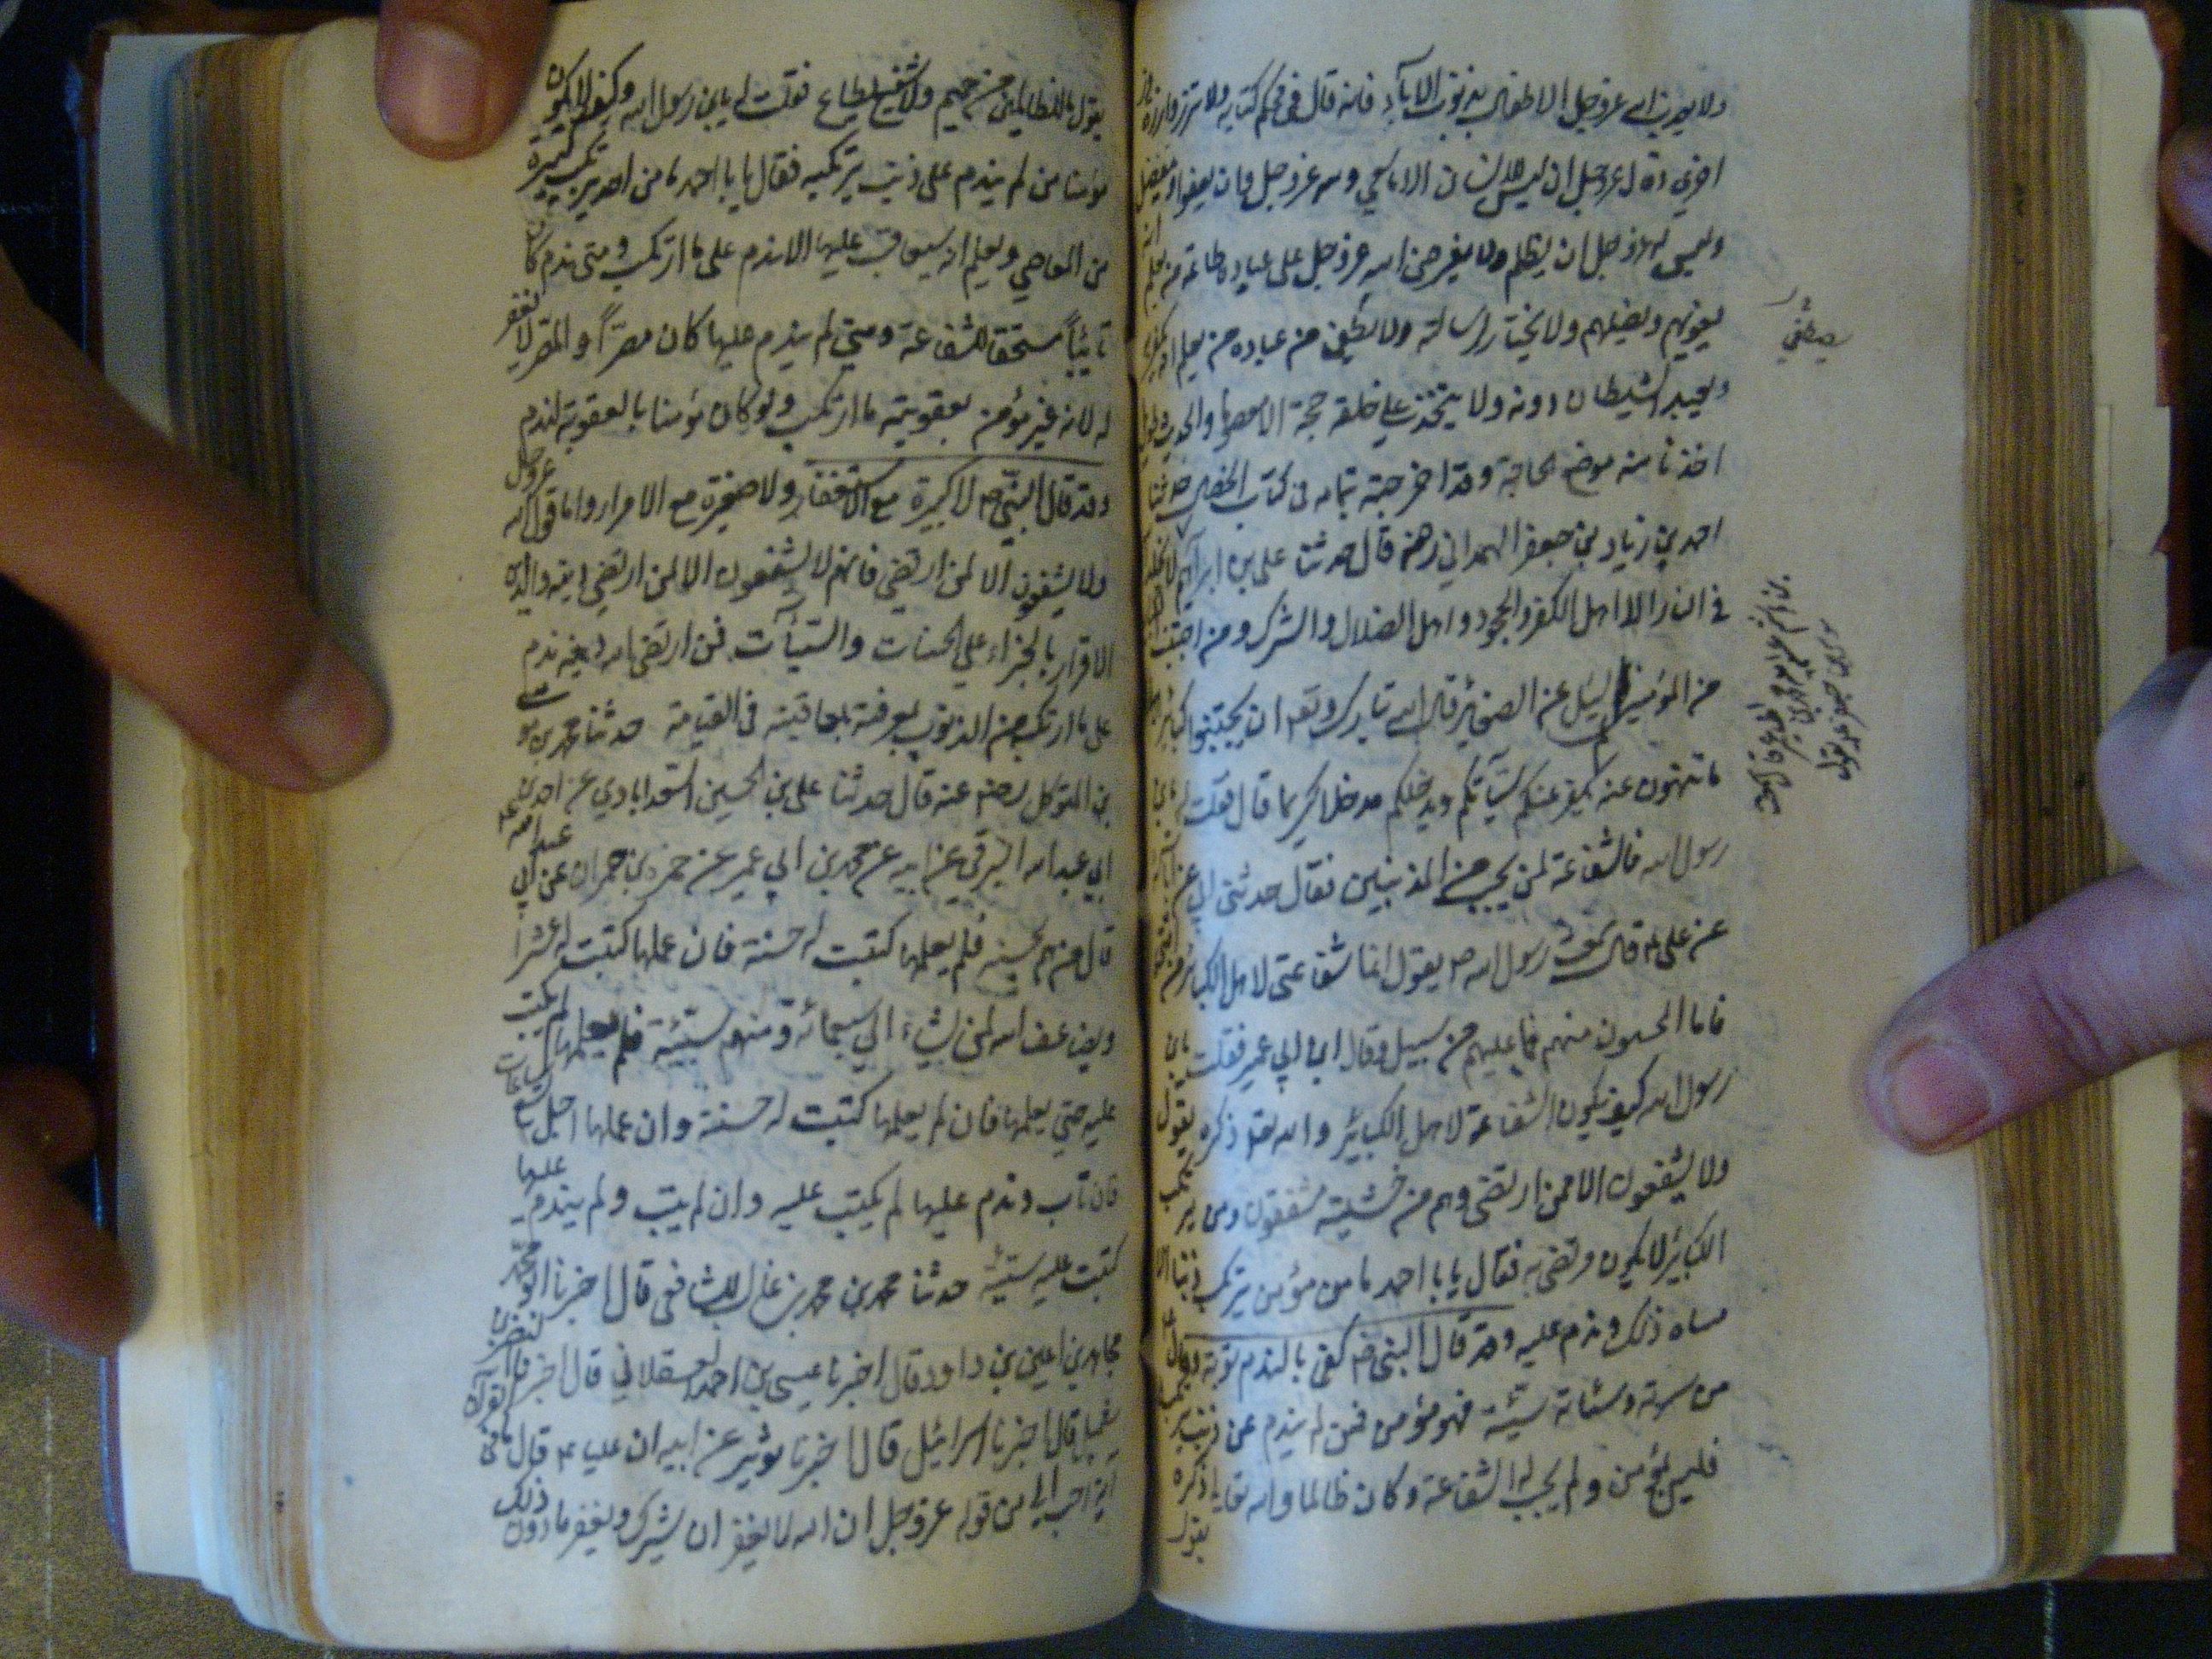 ولا يعذب الله عز وجل الاطفال بذنوب الاباء فانه قال في محكم كتابه ولا تزر وازرة وزر
اخرى وقال عز وجل ان ليس للانسان الا ما سعى ولله عز وجل ان يعفو ويتفضل
وليس له عز وجل ان يظلم ولا يفرض الله عز وجل على عباده طاعة من يعلم انه
يغويهم ويضلهم ولا يختار لرسالته ولا يصطفى من عباده من يعلم انه يكفر به
ويعبد الشيطان دونه ولا يتخذ على خلقه حجة الا معصوما والحديث طويل
اخذنا منه موضع الحاجة وقد اخرجته بتمامه في كتاب الخصال حدثنا
احمد بن زياد بن جعفر الهمداني رضه قال حدثنا علي بن ابراهيم
في النار الا اهل الكفر والجحود واهل الضلال والشرك ومن اجتنب
من المؤمنين لم يسئل عن الصغائر قال الله تبارك وتعالى ان تجتنبوا كبائر
ما تنهون عنه نكفر عنكم سيآتكم وندخلكم مدخلا كريما قال فقلت له يابن
رسول الله فالشفاعة لمن يجب من المذنبين فقال حدثني ابي عن آبائه
عن علي ع قال سمعت رسول الله ص يقول انما شفاعتي لاهل الكبائر من
فاما المحسنون منهم فما عليهم من سبيل وقال ابن ابي عمير فقلت يابن
رسول الله كيف يكون الشفاعة لاهل الكبائر والله تعالى ذكره يقول
ولا يشفعون الا لمن ارتضى وهم من خشيته مشفقون ومن يرتكب
الكبائر لا يكون مرتضى به فقال يا با احمد ما من مؤمن يرتكب ذنبا الا
ساءه ذلك وندم عليه وقد قال النبي ص كفى بالندم توبة وقال
من سرته حسنة وسائته سيئة فهو مؤمن فمن لم يندم عن ذنب يرتكبه
فليس بمؤمن ولم يجب له الشفاعة وكان ظالما والله تعالى ذكره
يقول
يصطفي
يقول ما للظالمين من حميم ولا شفيع يطاع فقلت له يابن رسول الله وكيف لا يكون
مؤمنا من لم يندم على ذنب يرتكبه فقال يا با احمد ما من احد يرتكب كبيرة
من المعاصي ويعلم انه سيعاقب عليها الا ندم على ما ارتكب ومتى ندم كان
تائبا مستحقا للشفاعة ومتى لم يندم عليها كان مصرا والمصر لا يغفر
له لانه غير مؤمن بعقوبة ما ارتكب ولو كان مؤمنا بالعقوبة لندم
وقد قال النبي ص لا كبيرة مع الاستغفار ولا صغيرة مع الاصرار واما قول الله عز وجل
ولا يشفعون الا لمن ارتضى فانهم لا يشفعون الا لمن ارتضى دينه والدين
الاقرار بالجزاء على الحسنات والسيآت فمن ارتضى الله دينه ندم
على ما ارتكب من الذنوب لمعرفته بعاقبته في القيامة حدثنا محمد بن موسى
بن المتوكل رضي الله عنه قال حدثنا علي بن الحسين السعدابادي عن احمد بن
ابي عبد الله البرقي عن ابيه عن محمد بن ابي عمير عن حمزة بن حمران عن ابي عبد الله ع
قال من هم بحسنة فلم يعملها كتبت له حسنة فان عملها كتبت له عشرا
ويضاعف الله لمن يشاء الى سبعمائة ومن هم بسيئة فلم يعملها لم يكتب
عليه حتى يعملها فان لم يعملها كتبت له حسنة وان عملها اجل تسع ساعات
فان تاب وندم عليها لم يكتب عليه وان لم يتب ولم يندم عليها
كتبت عليه سيئة حدثنا محمد بن محمد بن غالب الشافعي قال اخبرنا ابو محمد
مجاهد بن اعين بن داود قال اخبرنا عيسى بن احمد العسقلاني قال اخبرنا النضر بن
شميل قال اخبرنا اسرائيل قال اخبرنا ثوير عن ابيه ان عليا ع قال ما في القرآن
آية احب الي من قوله عز وجل ان الله لا يغفر ان يشرك به ويغفر ما دون ذلك